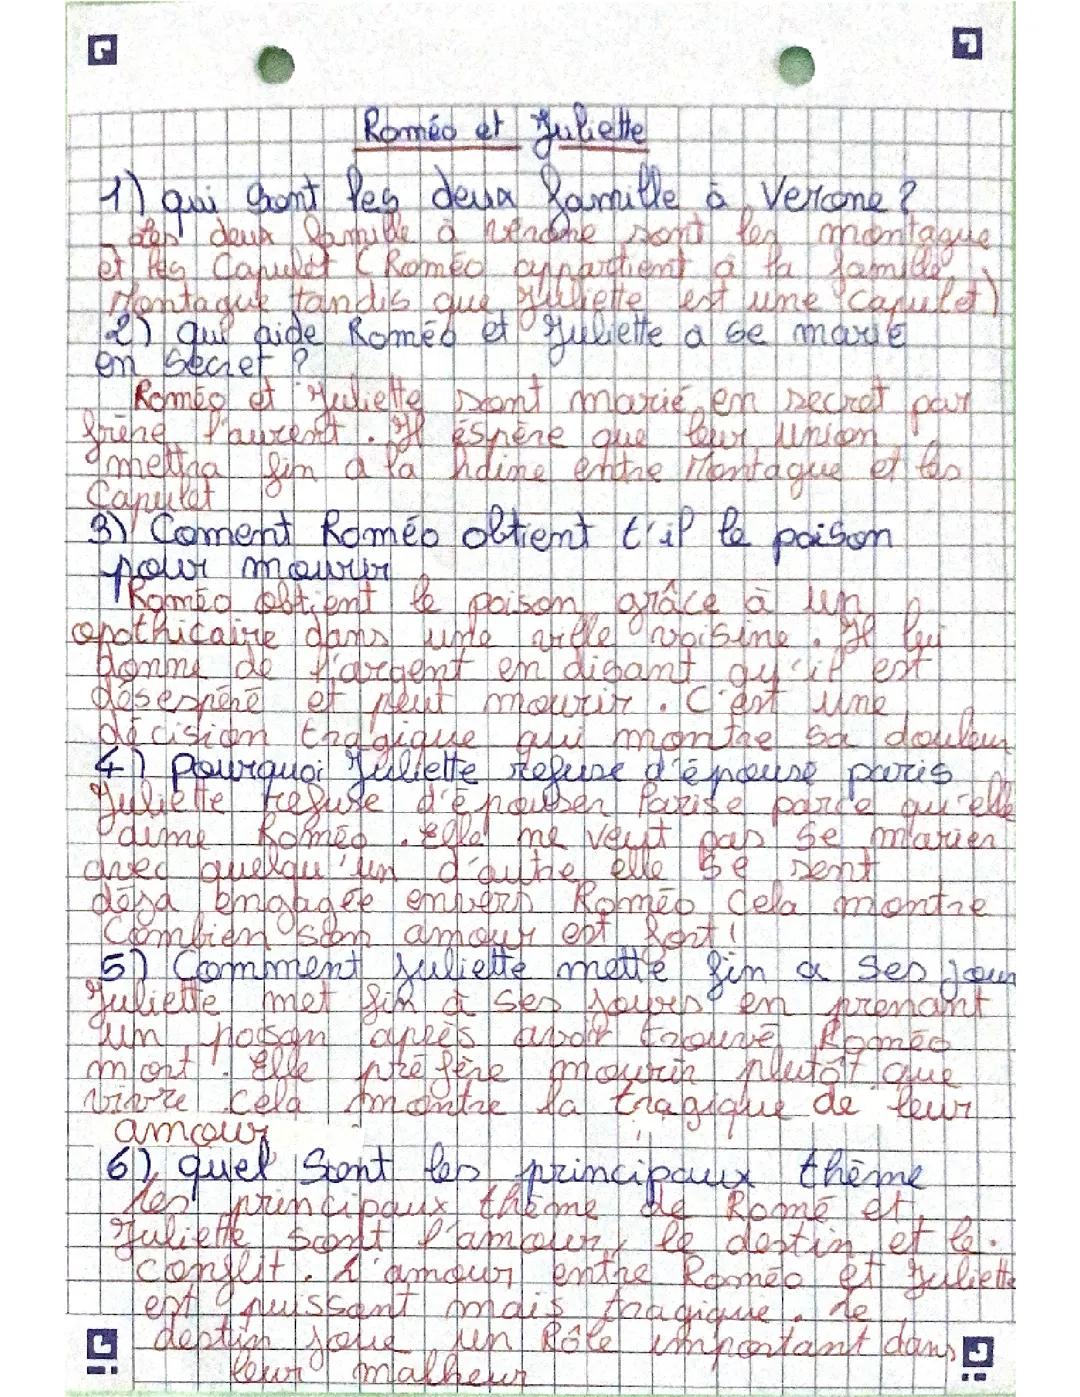 Roméo et Juliette
1) qui sont les deux famille à Verone ?
Les deux famille à vérone sont les montague
et les Capulet (Roméo appartient à la famille
Montague tandis que Juliette est une Capulet)
2) qui aide Roméo et Juliette a se marie
en secret ?
Roméo et Juliette sont marié en secret par
frère l'aurent. Il éspère que leur union
mettra fin a la haine entre Montague et les
Capulet
3) Coment Roméo obtient t'il le poison
pour mourir
Roméo obtient le poison grâce à un
apothicaire dans une ville voisine. Il lui
donne de l'argent en disant qu'il est
désespéré et peut mourir. C'est une
décision tragique qui montre sa douleur
4) pourquoi Juliette refuse d'épouse paris
Juliette refuse d'épouser Parise parce qu'elle
aime Roméo. Elle ne veut pas se marier
avec quelqu'un d'autre elle se sent
déja engagée envers Roméo cela montre
Combien son amour est fort!
5) Comment Juliette mette fin a ses jour
Juliette met fin à ses jours en prenant
un poison après avoir trouvé Roméo
mort. Elle préfère mourir plutôt que
vivre cela montre la tragique de leur
amour
6) quel sont les principaux thème
les principaux thème de Romé et
Juliette sont l'amour, le destin et le
conflit. L'amour entre Roméo et Juliette
est puissant mais tragique. Le
destin joue un Rôle important dans
leur malheur